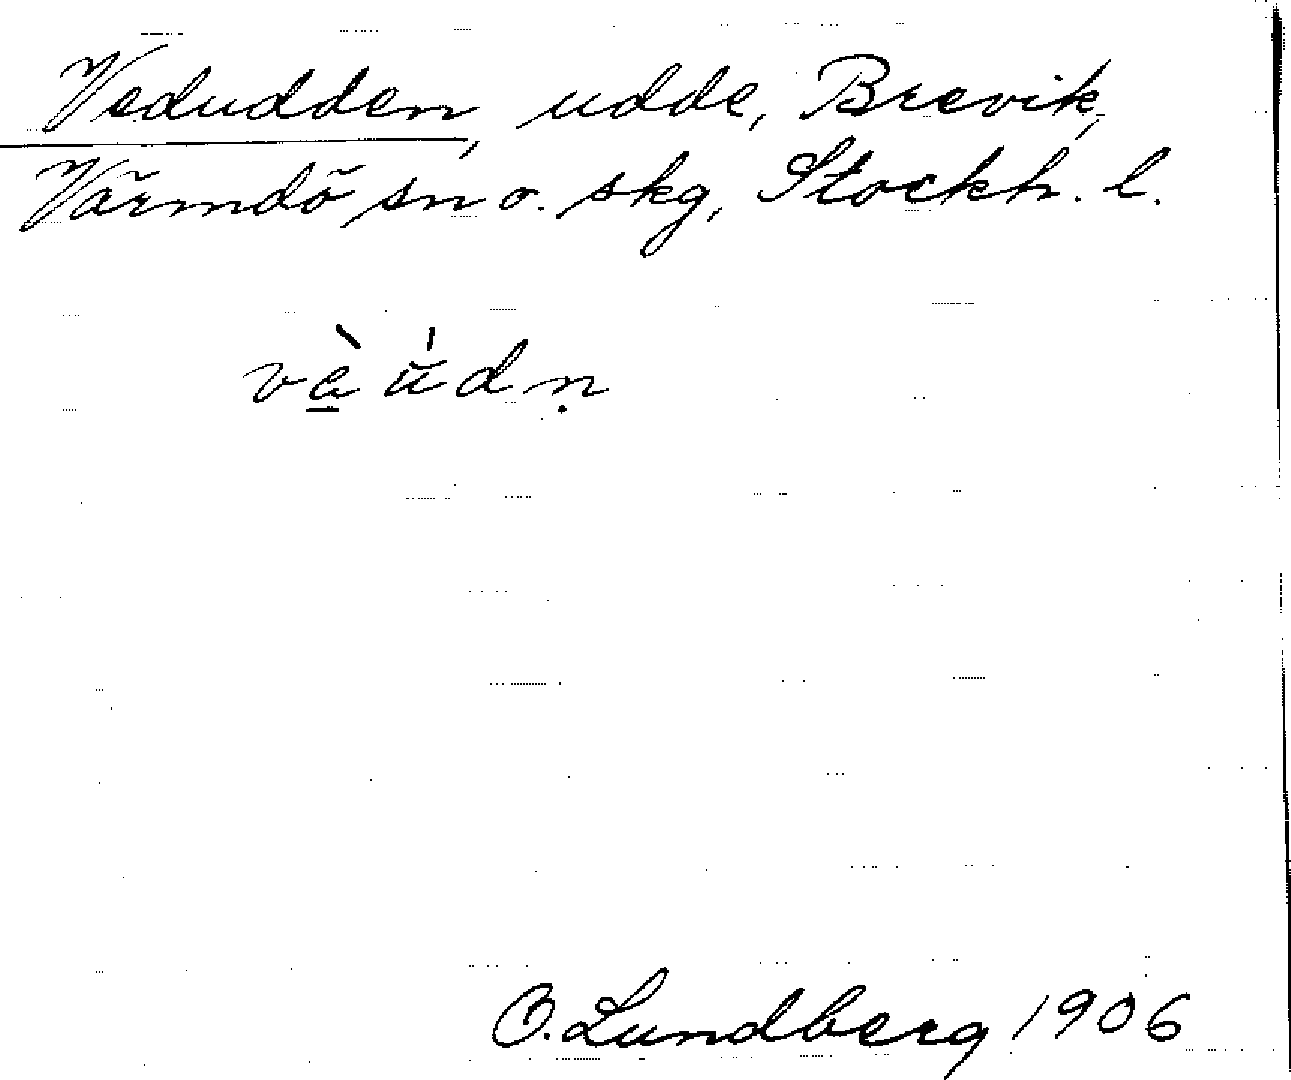 Vedudden, udde, Brevik,
Värmdö sn o. skg, Stockh. l.
vè̠ ŭ́dṇ
O. Lundberg 1906